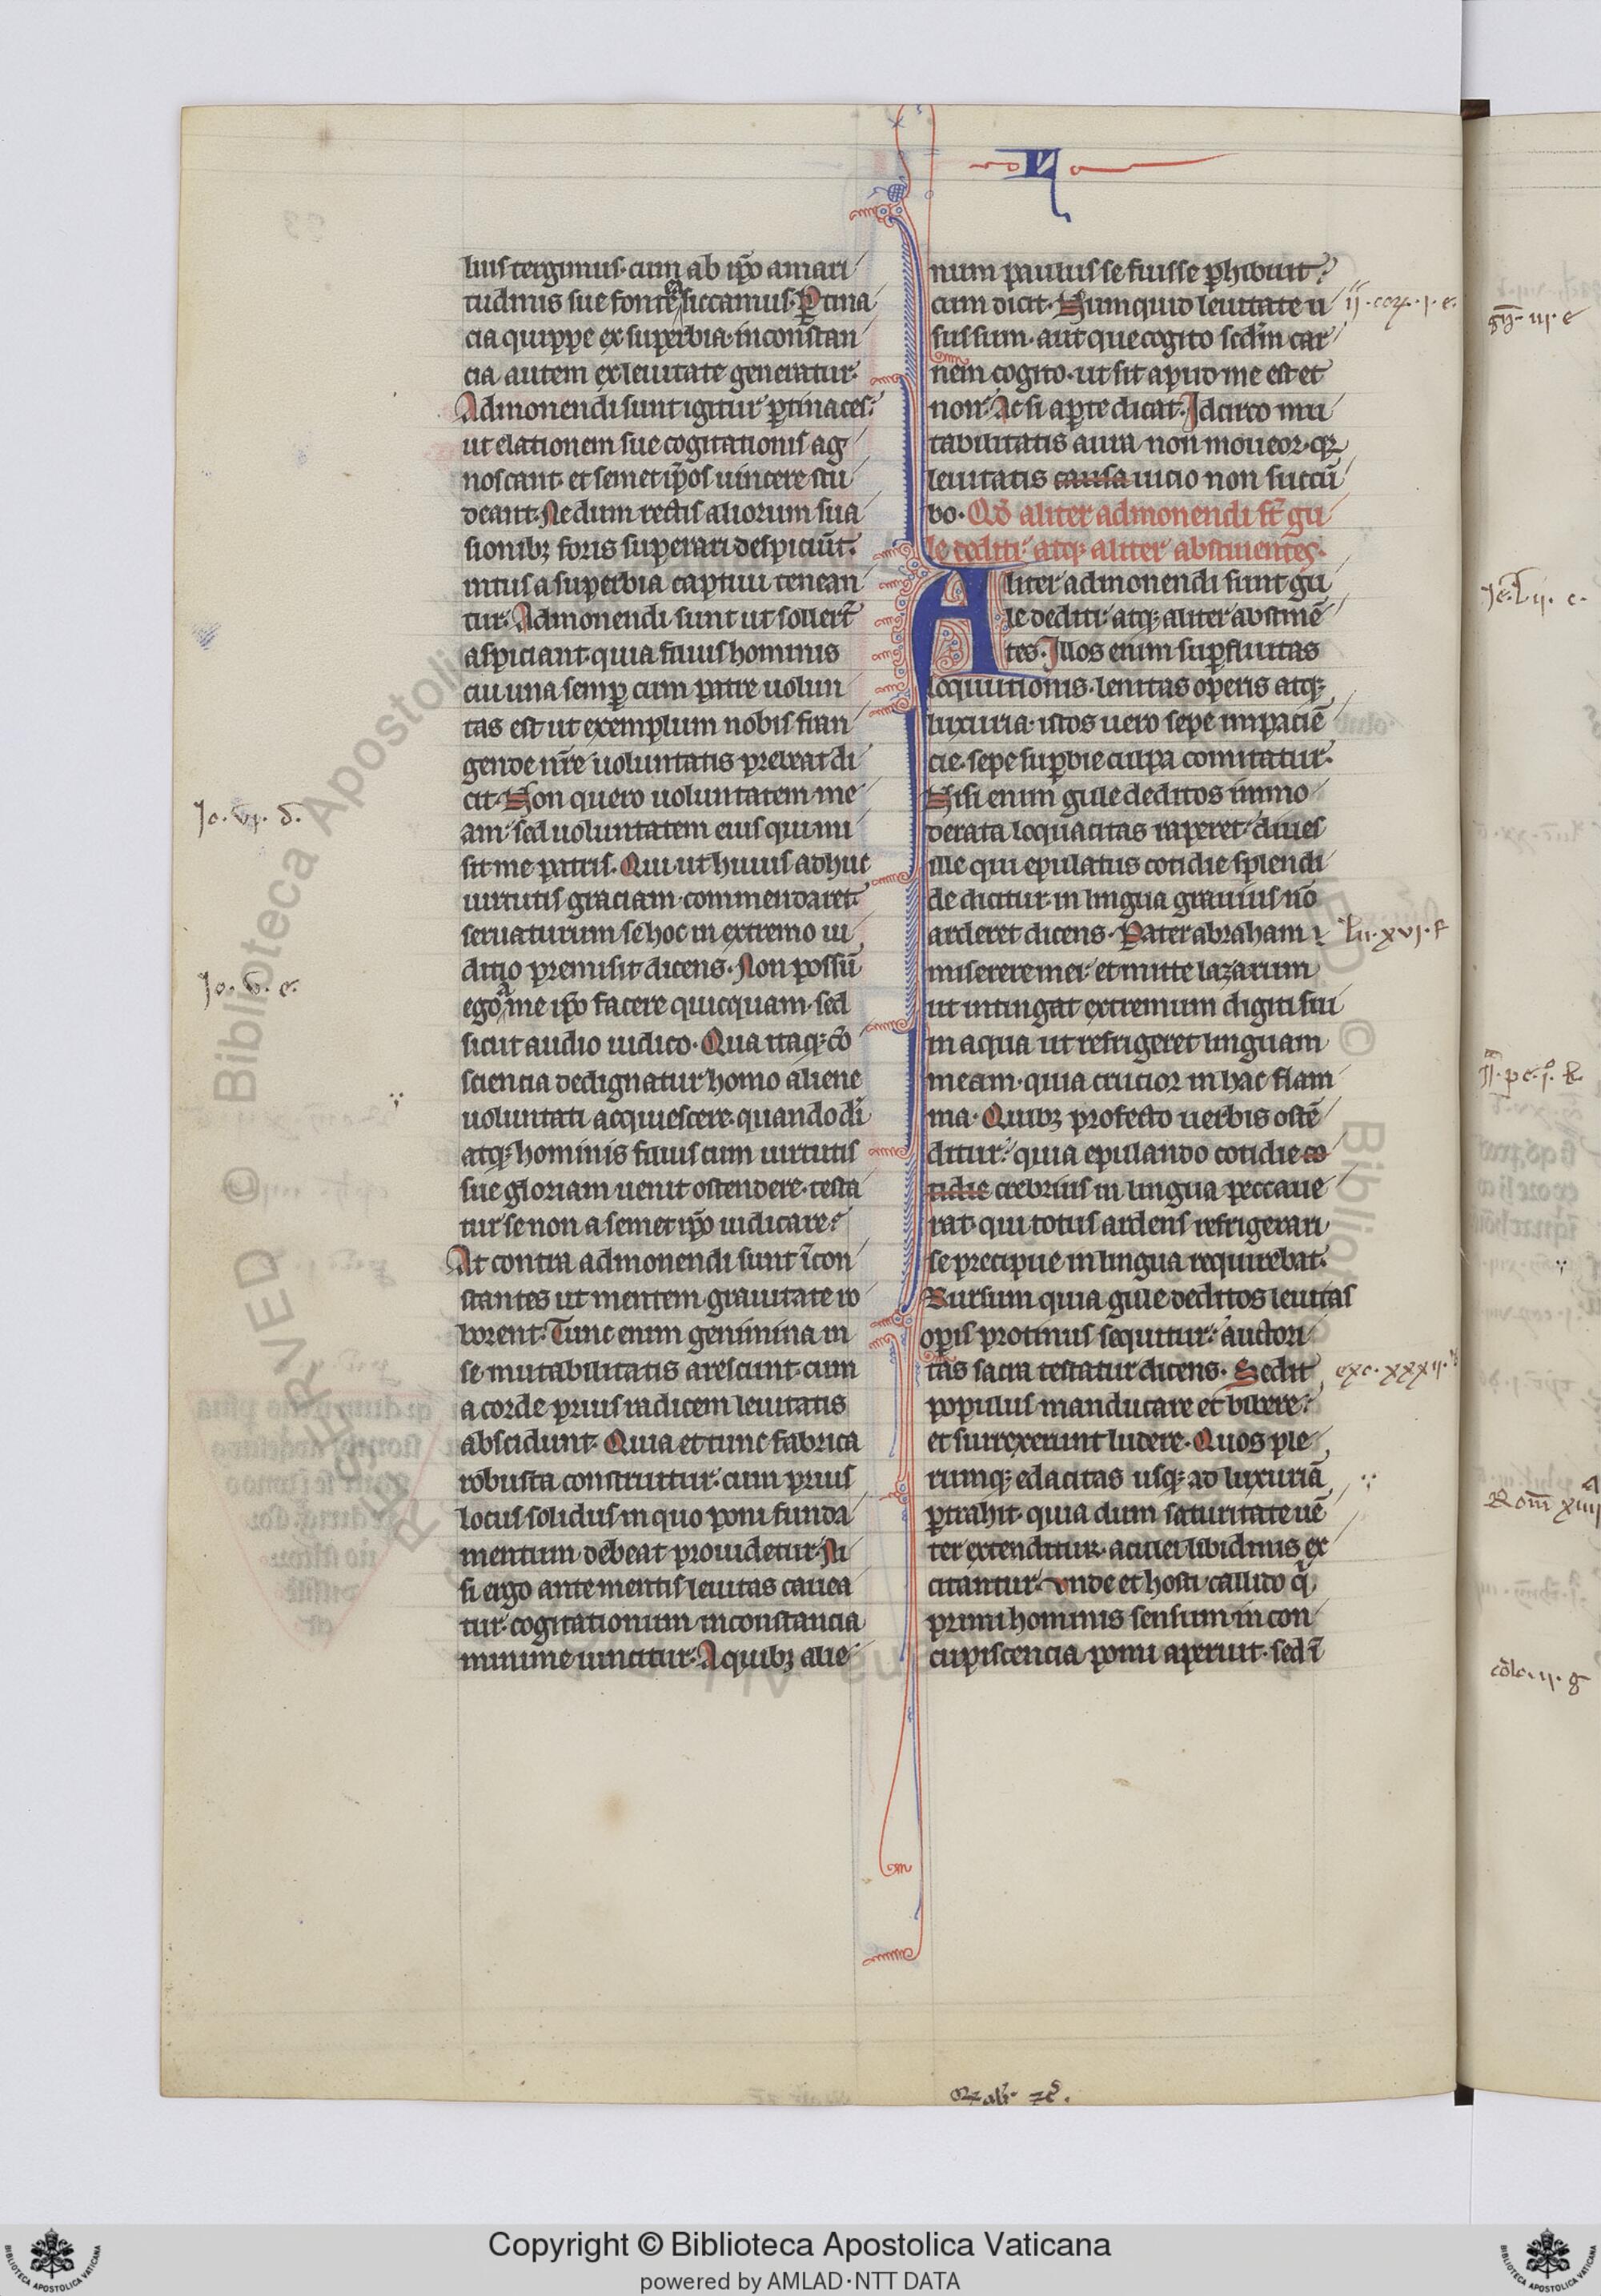 lius tergimus· cum ab ip̄o amari
tudinis sue fontē siccamus· P̱tina
cia quippe ex superbia· inconstan
cia autem ex leuitate generatur·
Admonendi sunt igitur p̱tinaces·
ut elationem sue cogitationis ag
noscant· et semet ip̄os uincere stu
deant· Ne dum rectis aliorum sua
sionibꝫ foris superari despiciūt·
intus a superbia captiui tenean
tur· Admonendi sunt ut sollert̄
aspiciant· quia filius hominis
cui una semꝑ cum patre uolun
tas est ut exemplum nobis fran
gende nr̄e uoluntatis prebeat di
cit· Non quero uoluntatem me
am· sed uoluntatem eius qui mi
sit me patris· Qui ut huius adhuc
uirtutis graciam commendaret·
seruaturum se hoc in extremo iu
ditio premisit dicens· Non possū
ego a me ip̄o facere quicquam· sed
sicut audio iudico· Qua itaqꝫ cō
sciencia dedignatur homo aliene
uoluntati acquiescere· quando di
atqꝫ hominis filius cum uirtutis
sue gloriam uenit ostendere· testa
tur se non a semet ip̄o iudicare·
At contra admonendi sunt īcon
stantes ut mentem grauitate ro
borent· Tunc enim genimina in
se mutabilitatis arescunt· cum
a corde prius radicem leuitatis
abscidunt· Quia et tunc fabrica
robusta construitur· cum prius
locus solidus in quo poni funda
mentum debeat prouidetur· Ni
si ergo ante mentis leuitas cauea
tur· cogitationum inconstancia
minime uincitur· A quibꝫ alie
Jo. vj. d.
Jo. v. e.
num paulus se fuisse ꝑhibuit·
cum dicit· Nunquid leuitate u
sus sum· aut que cogito sedīn car
nem cogito· ut sit apud me est et
non· Ac si aꝑte dicat· Idcirco mu
tabilitatis aura non moueor· qꝛ
leuitatis causa uicio non succū
bo· Qd̄ aliter admonendi st̄ gu
le dediti· atqꝫ aliter abstinentes·
Aliter admonendi sunt gu
le dediti· atqꝫ aliter abstinē
tes· Illos enim suꝑfluitas
loquutionis· leuitas operis atqꝫ
luxuria· istos uero sepe impaciē
cie· sepe suꝑbie culpa comitatur·
Nisi enim gule deditos immo
derata loquacitas raperet· diues
ille qui epulatus cotidie splendi
de dicitur· in lingua grauius nō
arderet dicens· Pater abraham
miserere mei· et mitte lazarum
ut intingat extremum digiti sui
in aqua ut refrigeret linguam
meam· quia crucior in hac flam
ma· Quibꝫ profecto uerbis ostē
ditur· quia epulando cotidie co
tidie crebrius in lingua peccaue
rat· qui totus ardens refrigerari
se precipue in lingua requirebat·
Rursum quia gule deditos leuitas
oꝑis protinus sequitur· auctori
tas sacra testatur dicens· Sedit
populus manducare et bibere·
et surrexerunt ludere· Quos ple
rumqꝫ edacitas usqꝫ ad luxuriā
ꝑtrahit· quia dum saturitate uē
ter extenditur· aculei libidinis ex
citantur· Vnde et hosti callido q̄
primi hominis sensum in con
cupiscencia pomi aperuit· sed ī
ij. cor. j. e.
lu. xvj. f
exo. xxxij.
Jē. lij. c.
Rom̄ xiiij
cōlo. ij. g
RESERVED © Biblioteca Apostolica
Copyright © Biblioteca Apostolica Vaticana
powered by AMLAD·NTT DATA